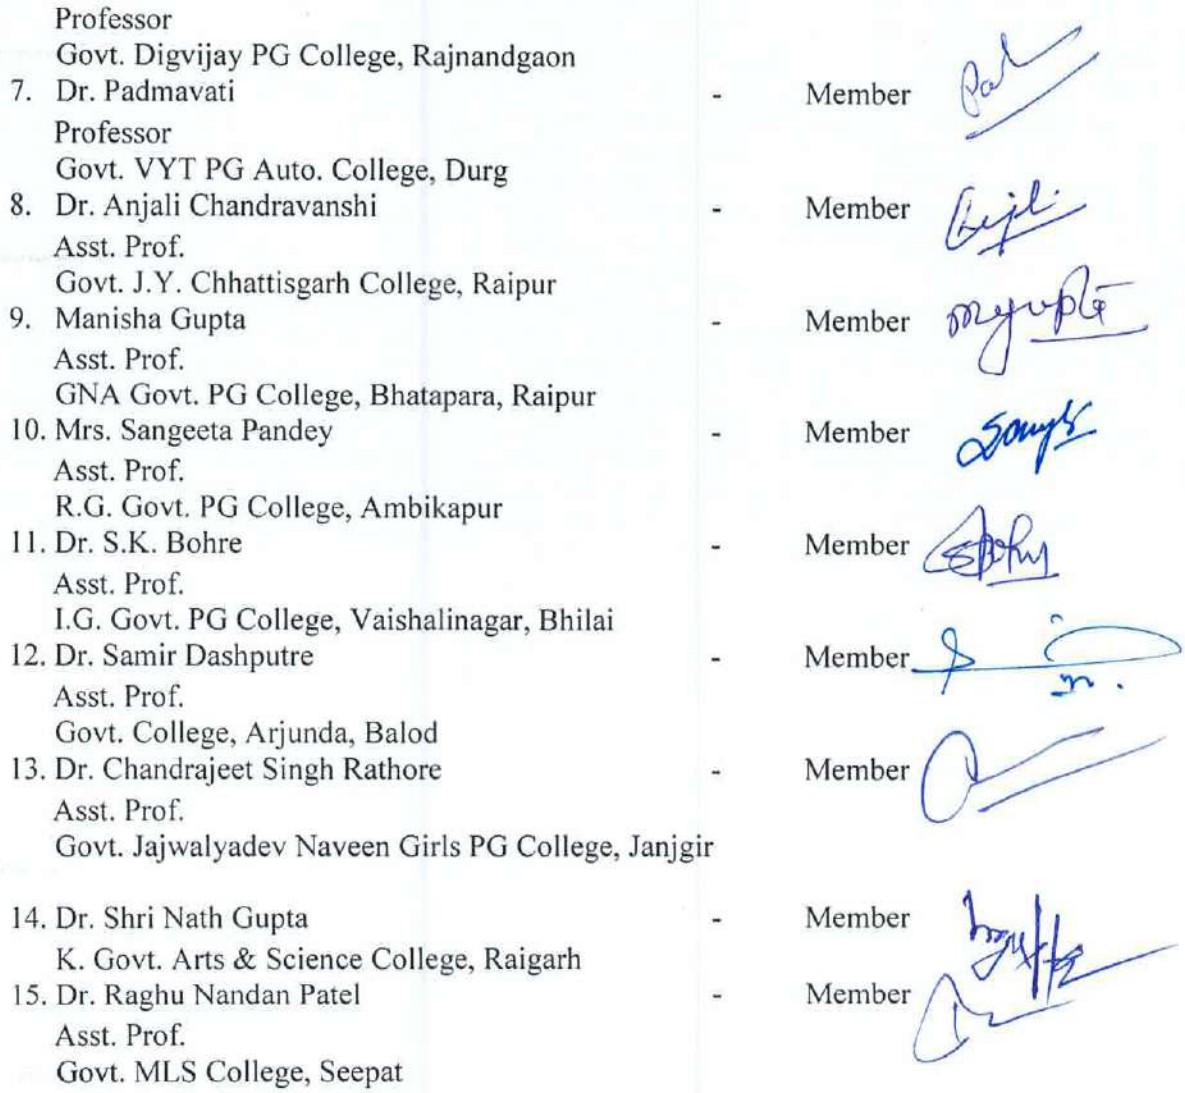 Professor
Govt. Digvijay PG College, Rajnandgaon
7. Dr. Padmavati - Member
Professor
Govt. VYT PG Auto. College, Durg
8. Dr. Anjali Chandravanshi - Member
Asst. Prof.
Govt. J.Y. Chhattisgarh College, Raipur
9. Manisha Gupta - Member mgupta
Asst. Prof.
GNA Govt. PG College, Bhatapara, Raipur
10. Mrs. Sangeeta Pandey - Member
Asst. Prof.
R.G. Govt. PG College, Ambikapur
11. Dr. S.K. Bohre - Member
Asst. Prof.
I.G. Govt. PG College, Vaishalinagar, Bhilai
12. Dr. Samir Dashputre - Member
Asst. Prof.
Govt. College, Arjunda, Balod
13. Dr. Chandrajeet Singh Rathore - Member
Asst. Prof.
Govt. Jajwalyadev Naveen Girls PG College, Janjgir
14. Dr. Shri Nath Gupta - Member
K. Govt. Arts & Science College, Raigarh
15. Dr. Raghu Nandan Patel - Member
Asst. Prof.
Govt. MLS College, Seepat